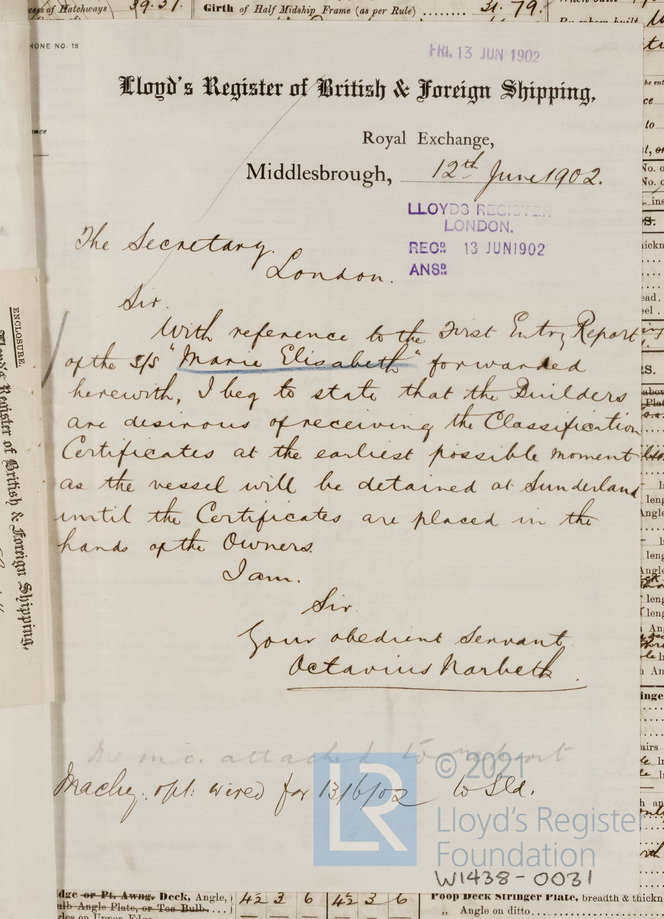 ness of Hatchways 39.31.
Girth of Half Midship Frame (as per Rule) ........ 31.79.
HONE NO. 18
FRI. 13 JUN 1902
Lloyd's Register of British & Foreign Shipping,
Royal Exchange,
Middlesbrough, 12th June 1902.
LLOYDS REGISTER
LONDON.
RECD. 13 JUN 1902
ANSD.
The Secretary.
London.
Sir.
With reference to the First Entry Report
of the S/S "Marie Elisabeth" forwarded
herewith, I beg to state that the Builders
are desirous of receiving the Classification
Certificates at the earliest possible moment
as the vessel will be detained at Sunderland
until the Certificates are placed in the
hands of the Owners.
I am.
Sir.
Your obedient servant.
Octavius Narbeth.
ENCLOSURE.
Lloyd's Register of British & Foreign Shipping,
attached to report
Machy. opt. wired for 13/6/02 to Sld.
LR
© 2021
Lloyd's Register
Foundation
W1438-0031
dge or Pt. Awng. Deck, Angle,
ulb Angle Plate, or Tee Bulb....
42 3 6 42 3 6
Poop Deck Stringer Plate, breadth & thickn
„ Angle on ditto